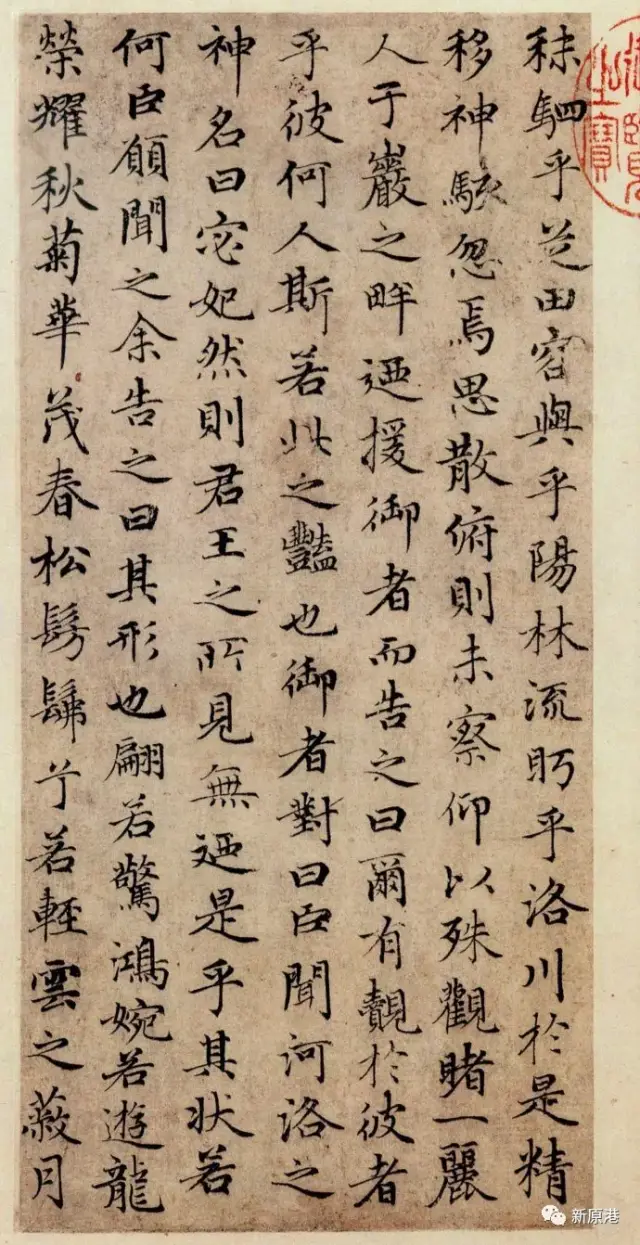 秣駟乎芝田容與乎陽林流眄乎洛川於是精
移神駭忽焉思散俯則未察仰以殊觀睹一麗
人于巖之畔迺援御者而告之曰爾有覿於彼者
乎彼何人斯若此之豔也御者對曰臣聞河洛之
神名曰宓妃然則君王之所見無迺是乎其狀若
何臣願聞之余告之曰其形也翩若驚鴻婉若遊龍
榮耀秋菊華茂春松髣髴兮若輕雲之蔽月
之寶
新原港